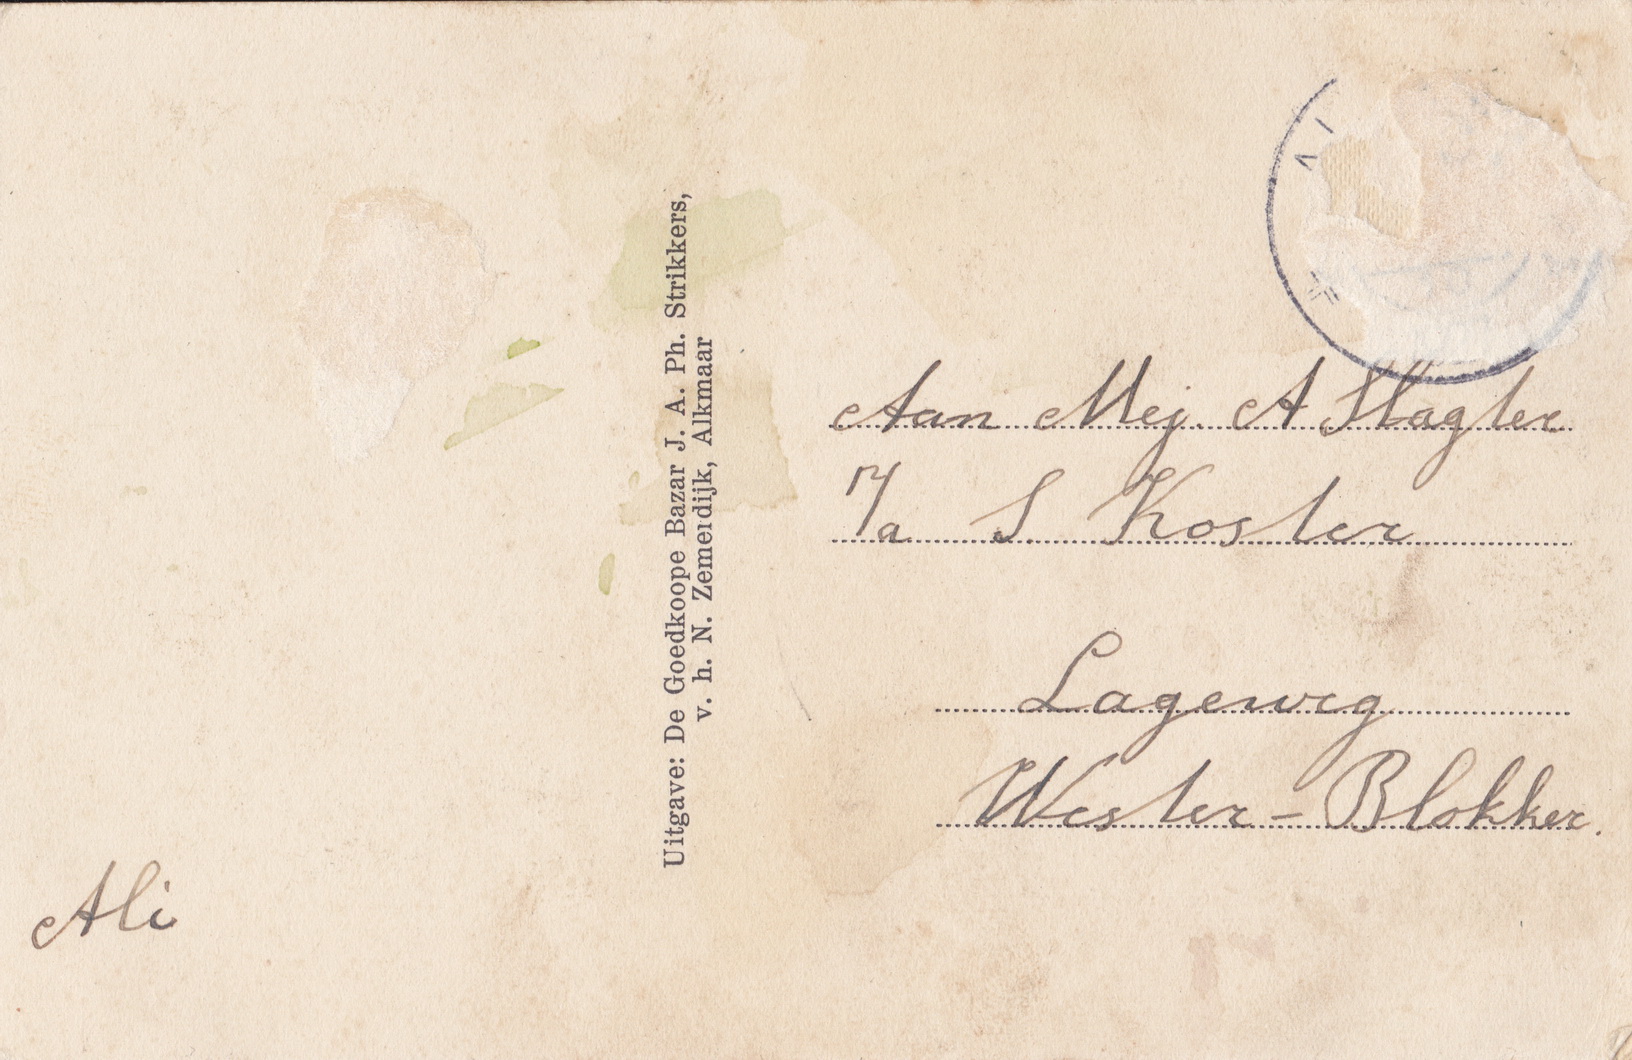 Uitgave: De Goedkoope Bazar J. A. Ph. Strikkers,
v. h. N. Zemerdijk, Alkmaar
Aan Mej. A Slagter
p/a S. Koster
Lageweg
Wester-Blokker.
Ali